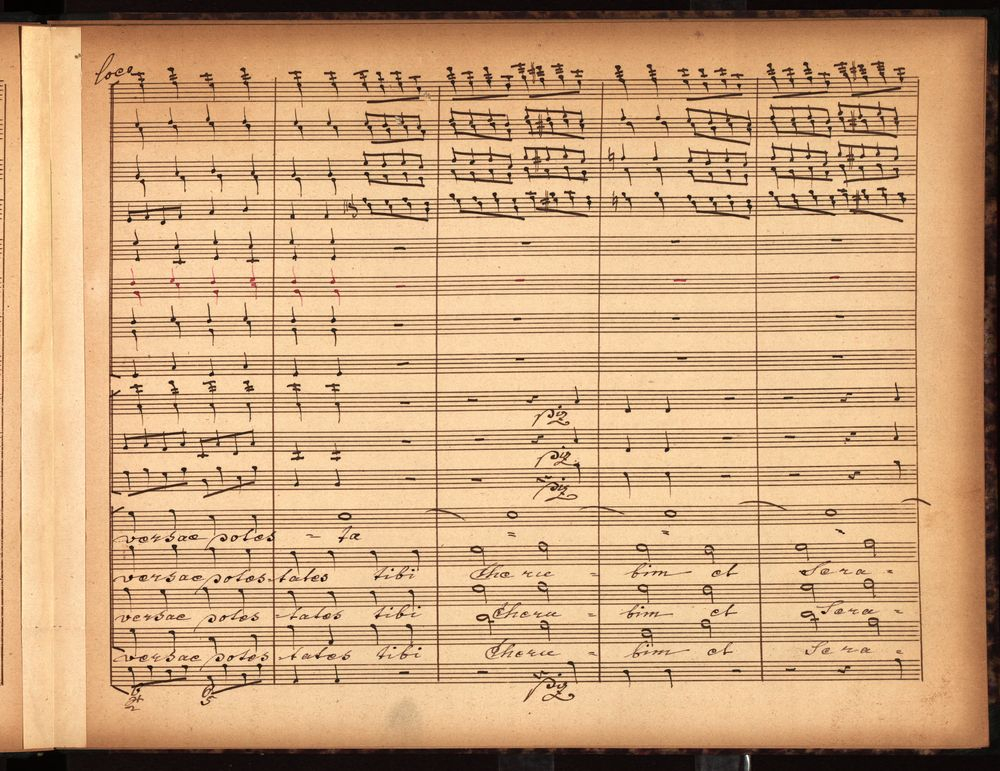 loco
piz
piz
piz
versae potes = ta = = =
versae potes-tates tibi Cheru = bim et Sera =
versae potes-tates tibi Cheru = bim et Sera =
versae potes-tates tibi Cheru = bim et Sera =
6 6 piz
2 5